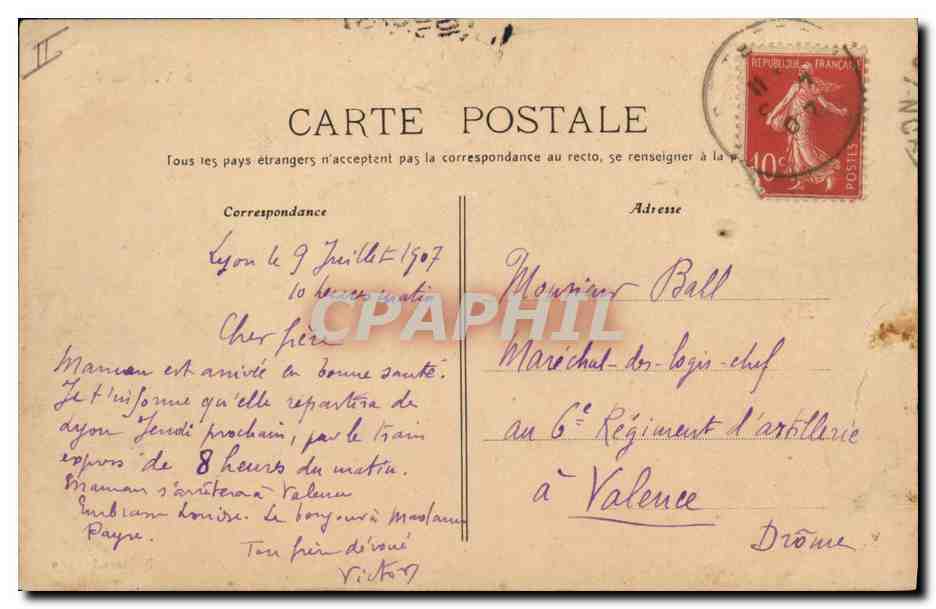 II
REPUBLIQUE FRANÇAISE
10c
POSTES
CARTE POSTALE
Tous les pays étrangers n'acceptent pas la correspondance au recto, se renseigner à la
Correspondance
Adresse
Lyon le 9 Juillet 1907
10 heures matin
Cher frère
Maman est arrivée en bonne santé.
Je t'informe qu'elle repartira de
Lyon Jeudi prochain, par le train
express de 8 heures du matin.
Maman s'arrêtera à Valence
Embrasse Louise. Le bonjour à Madame
Payre.
Ton frère dévoué
Victor
Monsieur Ball
Maréchal-des-logis-chef
au 6e Régiment d'artillerie
à Valence
Drôme
CPAPHIL